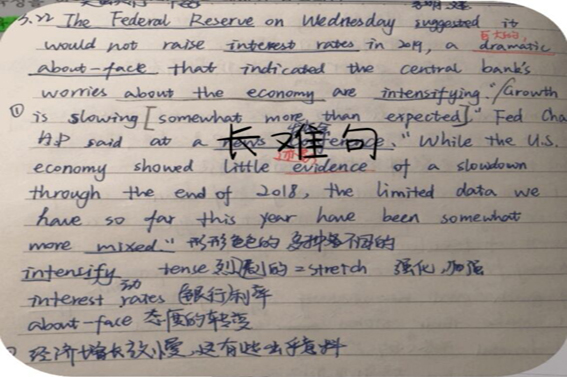 3.22 The Federal Reserve on Wednesday suggested it
would not raise interest rates in 2019, a dramatic
about-face that indicated the central bank's
worries about the economy are intensifying. "Growth
① is slowing [somewhat more than expected]," Fed Cha
said at a news conference. "While the U.S.
长难句
economy showed little evidence of a slowdown
through the end of 2018, the limited data we
have so far this year have been somewhat
more mixed." 形形色色的 多种各不同的
intensify tense 强化,加强 = stretch
interest rates 银行利率
about-face 态度的转变
经济增长放慢,还有些出乎意料